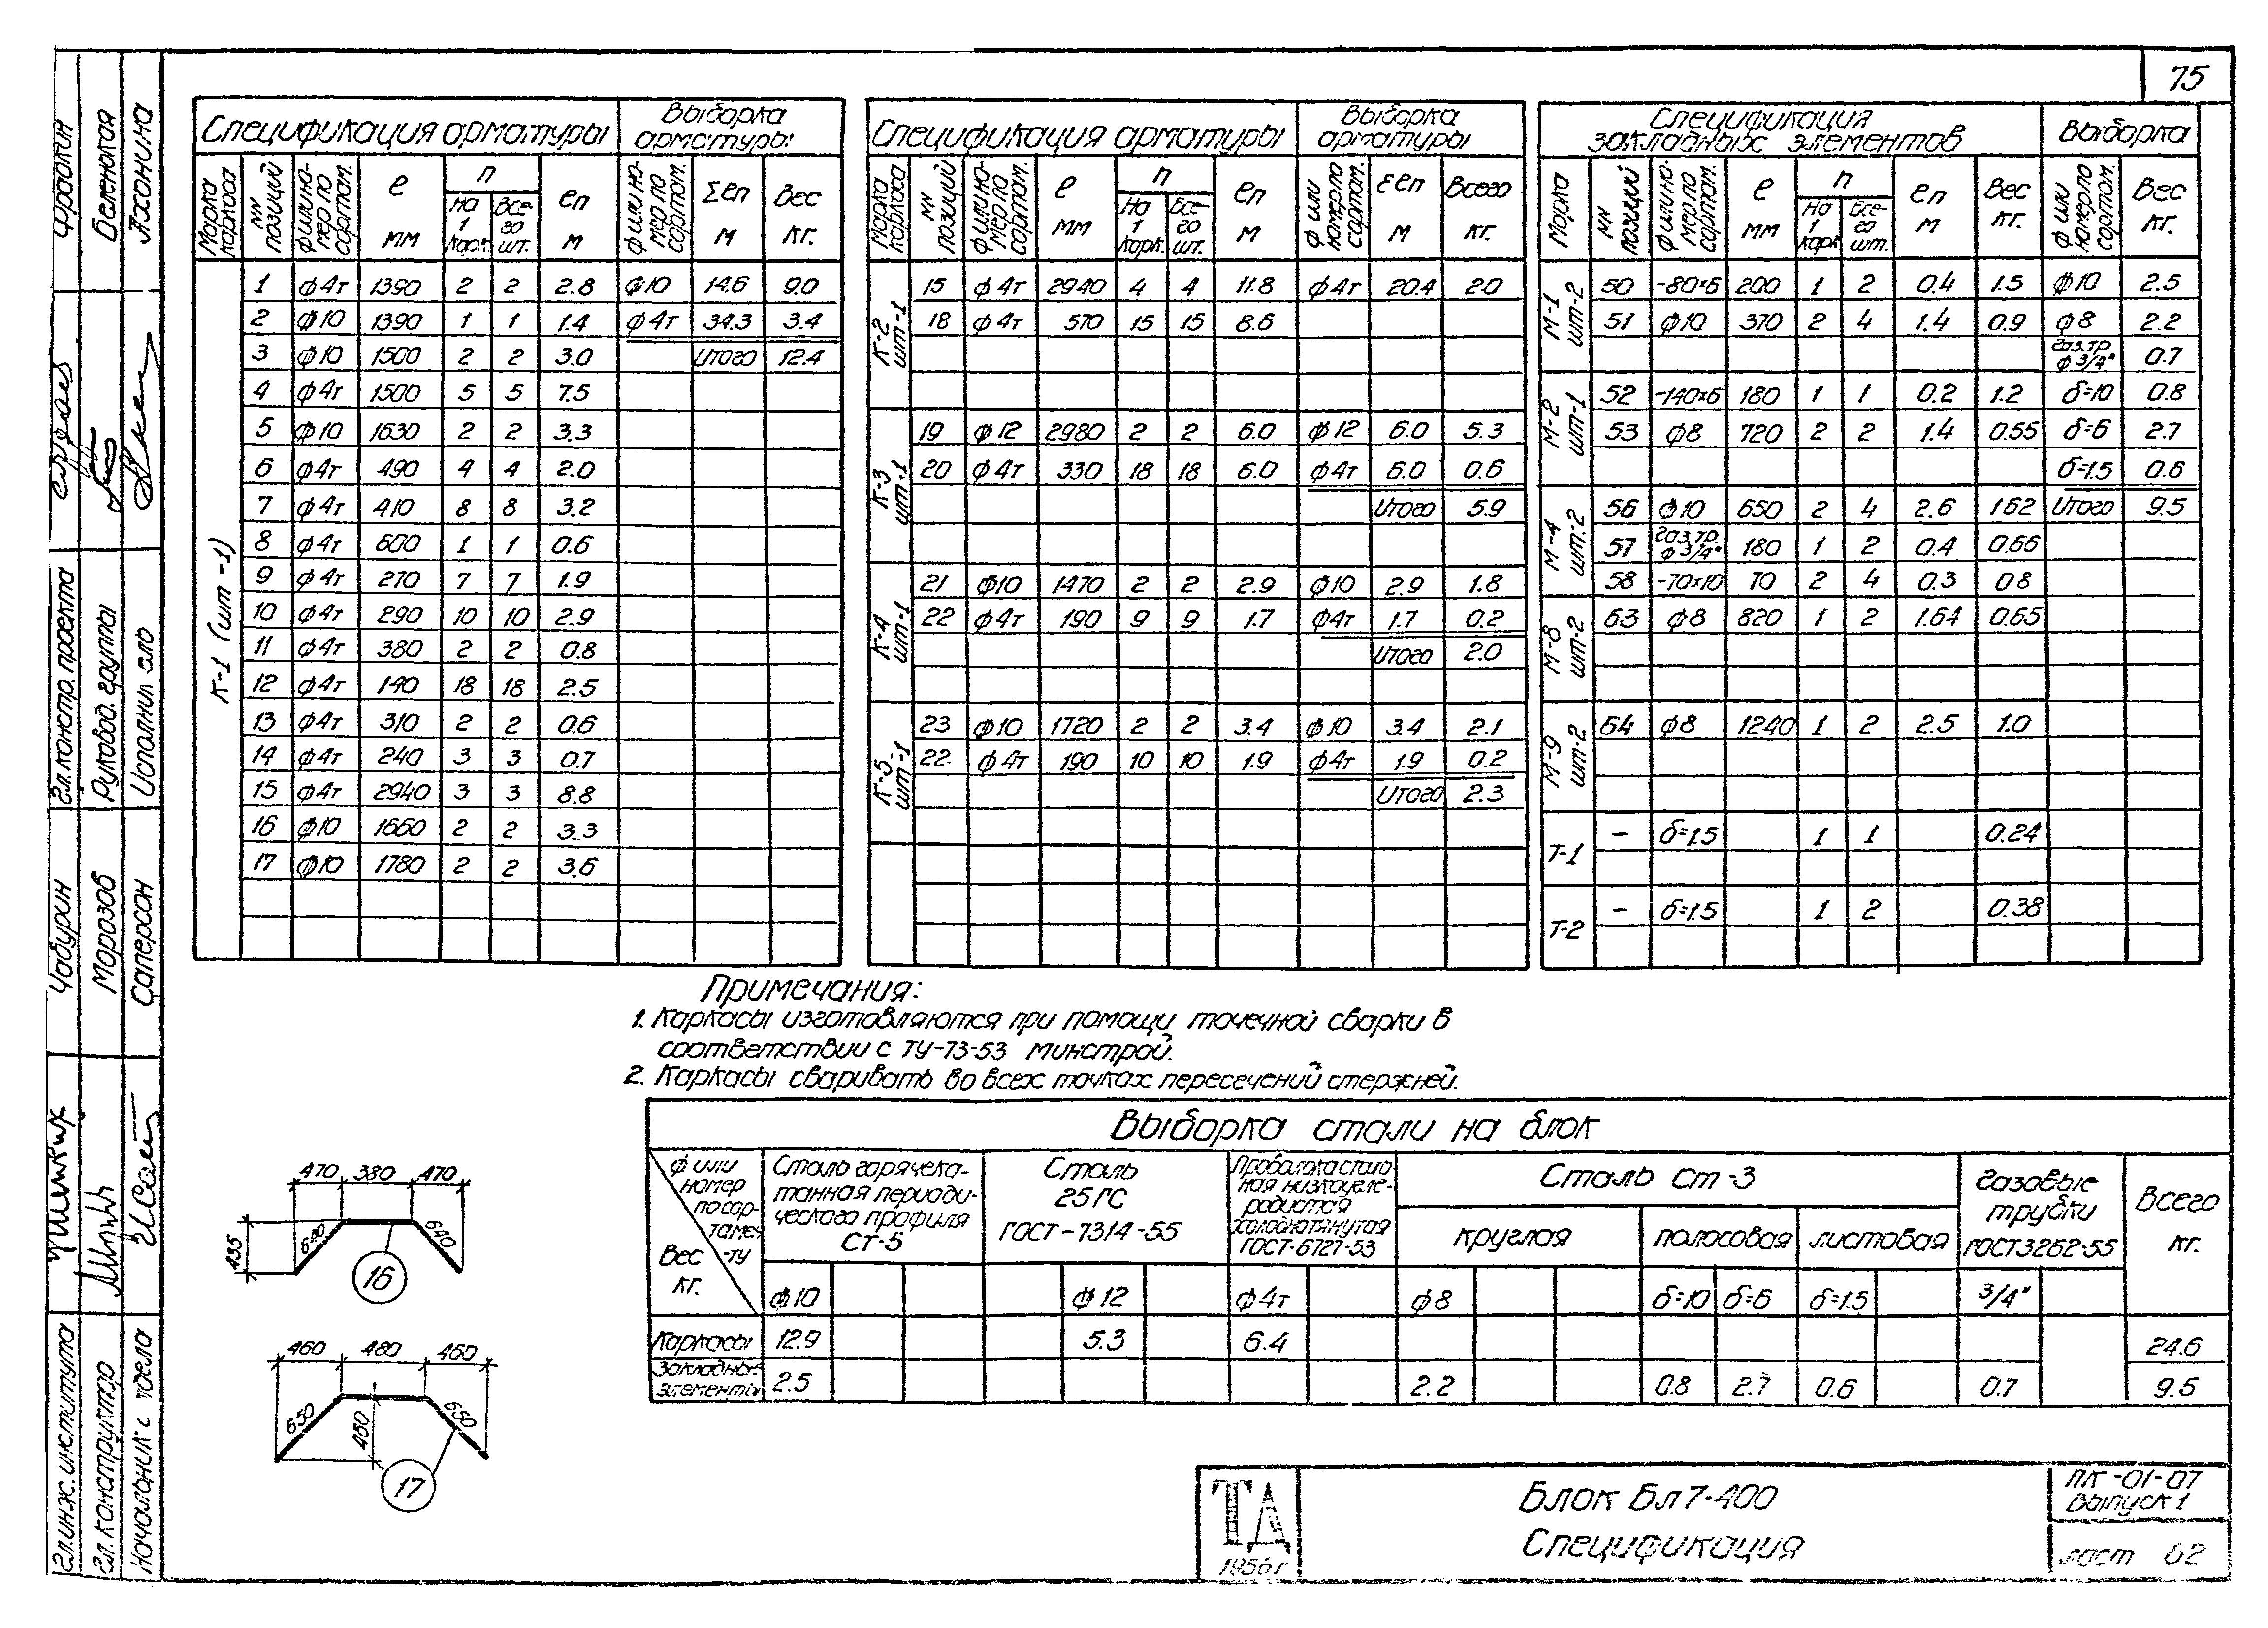 75
Спецификация арматуры | Выборка арматуры
Марка каркаса | NN позиций | ф или номер по сортам. | ℓ мм | n | На 1 карк. | Всего шт. | ℓn м | ф или номер по сортам. | Σℓn м | Вес кг.
К-1 (шт-1)
1 | ф4т | 1390 | 2 | 2 | 2.8 | ф10 | 14.6 | 9.0
2 | ф10 | 1390 | 1 | 1 | 1.4 | ф4т | 34.3 | 3.4
3 | ф10 | 1500 | 2 | 2 | 3.0 | Итого | 12.4
4 | ф4т | 1500 | 5 | 5 | 7.5
5 | ф10 | 1630 | 2 | 2 | 3.3
6 | ф4т | 490 | 4 | 4 | 2.0
7 | ф4т | 410 | 8 | 8 | 3.2
8 | ф4т | 600 | 1 | 1 | 0.6
9 | ф4т | 270 | 7 | 7 | 1.9
10 | ф4т | 290 | 10 | 10 | 2.9
11 | ф4т | 380 | 2 | 2 | 0.8
12 | ф4т | 140 | 18 | 18 | 2.5
13 | ф4т | 310 | 2 | 2 | 0.6
14 | ф4т | 240 | 3 | 3 | 0.7
15 | ф4т | 2940 | 3 | 3 | 8.8
16 | ф10 | 1660 | 2 | 2 | 3.3
17 | ф10 | 1780 | 2 | 2 | 3.6
Спецификация арматуры | Выборка арматуры
Марка каркаса | NN позиций | ф или номер по сортам. | ℓ мм | n | На 1 карк. | Всего шт. | ℓn м | ф или номер по сортам. | Σℓn м | Всего кг.
К-2 шт-1
15 | ф4т | 2940 | 4 | 4 | 11.8 | ф4т | 20.4 | 2.0
18 | ф4т | 570 | 15 | 15 | 8.6
К-3 шт-1
19 | ф12 | 2980 | 2 | 2 | 6.0 | ф12 | 6.0 | 5.3
20 | ф4т | 330 | 18 | 18 | 6.0 | ф4т | 6.0 | 0.6
Итого | 5.9
К-4 шт-1
21 | ф10 | 1470 | 2 | 2 | 2.9 | ф10 | 2.9 | 1.8
22 | ф4т | 190 | 9 | 9 | 1.7 | ф4т | 1.7 | 0.2
Итого | 2.0
К-5 шт-1
23 | ф10 | 1720 | 2 | 2 | 3.4 | ф10 | 3.4 | 2.1
22 | ф4т | 190 | 10 | 10 | 1.9 | ф4т | 1.9 | 0.2
Итого | 2.3
Спецификация закладных элементов | Выборка
Марка | NN позиций | ф или номер по сортам. | ℓ мм | n | На 1 карк | Всего шт. | ℓn м | Вес кг. | ф или номер по сортам. | Вес кг.
М-1 шт-2
50 | -80×6 | 200 | 1 | 2 | 0.4 | 1.5 | ф10 | 2.5
51 | ф10 | 370 | 2 | 4 | 1.4 | 0.9 | ф8 | 2.2
газ.тр. ф 3/4" | 0.7
М-2 шт-1
52 | -140×6 | 180 | 1 | 1 | 0.2 | 1.2 | δ=10 | 0.8
53 | ф8 | 720 | 2 | 2 | 1.4 | 0.55 | δ=6 | 2.7
δ=1.5 | 0.6
М-4 шт-2
56 | ф10 | 650 | 2 | 4 | 2.6 | 1.62 | Итого | 9.5
57 | газ.тр. ф 3/4" | 180 | 1 | 2 | 0.4 | 0.66
58 | -70×10 | 70 | 2 | 4 | 0.3 | 0.8
М-8 шт-2
63 | ф8 | 820 | 1 | 2 | 1.64 | 0.65
М-9 шт-2
64 | ф8 | 1240 | 1 | 2 | 2.5 | 1.0
Т-1 | - | δ=1.5 | 1 | 1 | 0.24
Т-2 | - | δ=1.5 | 1 | 2 | 0.38
Примечания:
1. Каркасы изготовляются при помощи точечной сварки в
соответствии с ТУ-73-53 Минстрой.
2. Каркасы сваривать во всех точках пересечений стержней.
Выборка стали на блок
ф или номер по сортаменту | Вес кг. | Сталь горячекатанная периодического профиля Ст-5 | Сталь 25ГС ГОСТ-7314-55 | Проволока стальная низкоуглеродистая холоднотянутая ГОСТ-6727-53 | Сталь Ст-3 | Газовые трубки ГОСТ 3262-55 | Всего кг.
круглая | полосовая | листовая
ф10 | ф12 | ф4т | ф8 | δ=10 | δ=6 | δ=1.5 | 3/4"
Каркасы | 12.9 | 5.3 | 6.4 | 24.6
Закладные элементы | 2.5 | 2.2 | 0.8 | 2.7 | 0.6 | 0.7 | 9.5
470 380 470
435 640 640
16
460 480 460
650 480 650
17
ТД
1956г
Блок Бл 7-400
Спецификация
ПК-01-07
Выпуск 1
лист 62
Гл. констр. проекта
Руковод. группы
Исполнил
Беленькая
Чабурин
Морозов
Саперсон
Гл. инж. института
Гл. конструктор
Начальник отдела